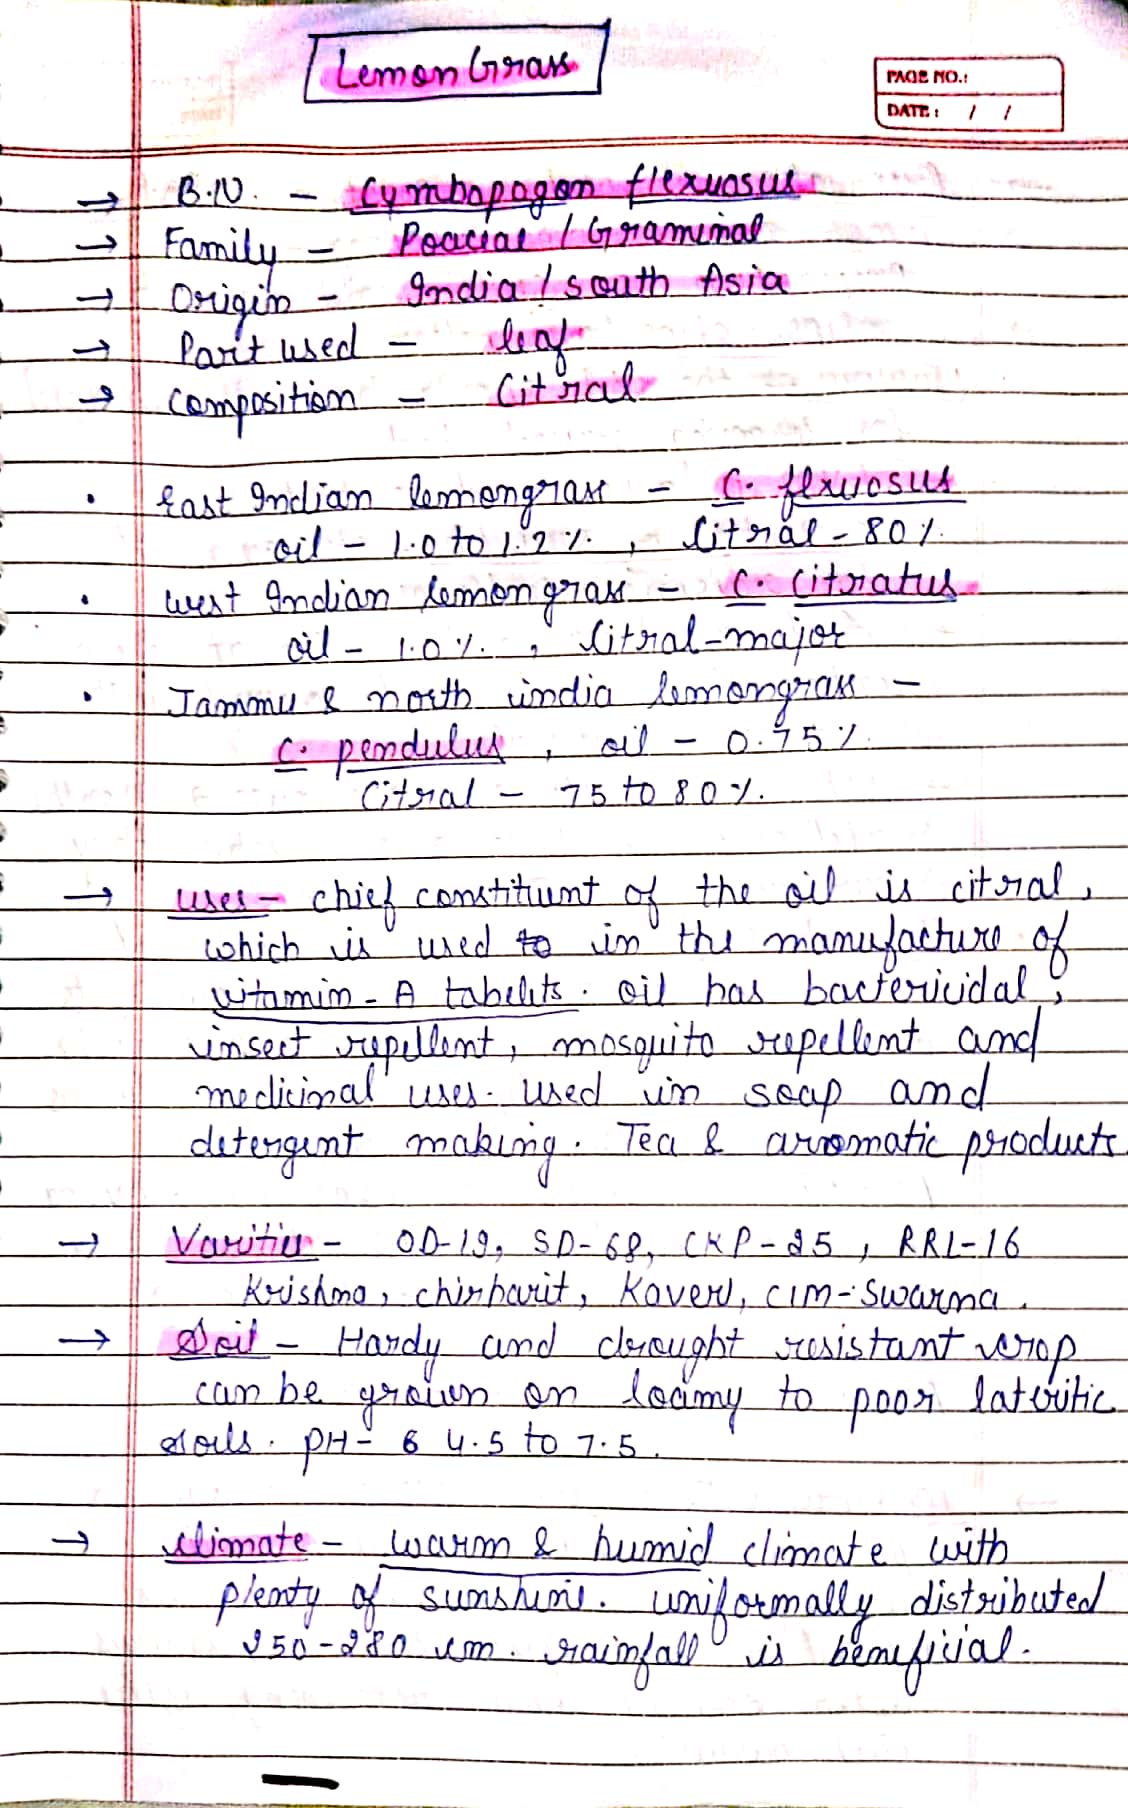 Lemon Grass
PAGE NO.:
DATE: / /
→ B.N. - Cymbopagon flexuosus
→ Family - Poacial / Graminal
→ Origin - India / south Asia
→ Part used - leaf
→ Composition - Citral
• East Indian lemongrass - C. flexuosus
oil - 1.0 to 1.2 %. , Citral - 80 %.
• West Indian lemongrass - C. citratus
oil - 1.0 %. , Citral - major
• Jammu & north india lemongrass -
C. pendulus , oil - 0.75 %.
Citral - 75 to 80 %.
→ uses - chief constituent of the oil is citral,
which is used to in the manufacture of
vitamin - A tabelits. oil has bactericidal,
insect repellent, mosquito repellent and
medicinal uses. used in soap and
detergent making. Tea & aromatic products
→ Varities - OD-19, SD-68, CKP-25, RRL-16
Krishna, chirharit, Kaveri, CIM-Swarna.
→ Soil - Hardy and drought resistant crop
can be grown on loamy to poor lateritic
soils. PH - 6 4.5 to 7.5.
→ climate - warm & humid climate with
plenty of sunshine. uniformally distributed
250-280 cm. rainfall is beneficial.